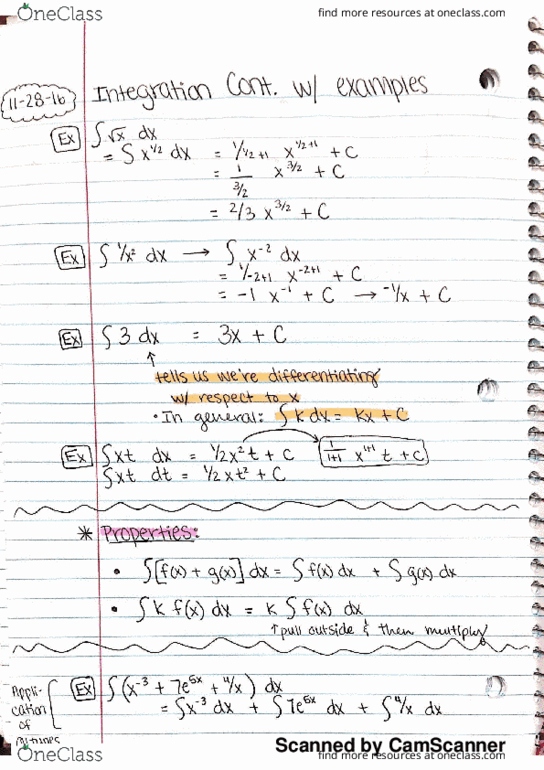 OneClass
find more resources at oneclass.com
11-28-16
Integration Cont. w/ examples
Ex ∫ √x dx
= ∫ x^1/2 dx = 1/1/2+1 x^1/2+1 + C
= 1/3/2 x^3/2 + C
= 2/3 x^3/2 + C
Ex ∫ 1/x² dx → ∫ x^-2 dx
= 1/-2+1 x^-2+1 + C
= -1 x^-1 + C → -1/x + C
Ex ∫ 3 dx = 3x + C
↑
tells us we're differentiating
w/ respect to x
• In general: ∫ k dx = kx + C
Ex ∫ xt dx = 1/2x²t + C → 1/1+1 x^1+1 t + C
∫ xt dt = 1/2 xt² + C
* Properties:
• ∫ [f(x) + g(x)] dx = ∫ f(x) dx + ∫ g(x) dx
• ∫ k f(x) dx = k ∫ f(x) dx
↑ pull outside & then multiply
Appli-
cation
of
Ex ∫ (x^-3 + 7e^5x + 4/x) dx
= ∫ x^-3 dx + ∫ 7e^5x dx + ∫ 4/x dx
OneClass
Scanned by CamScanner
find more resources at oneclass.com